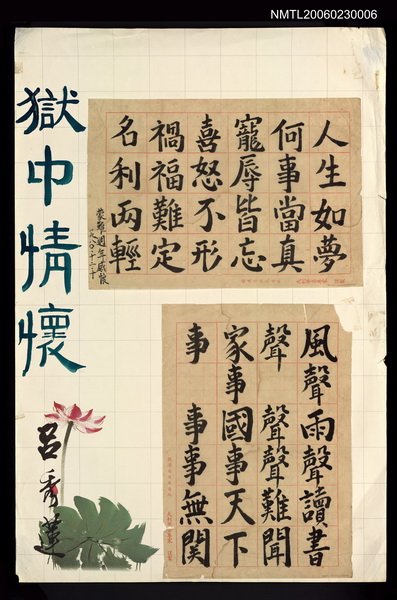 NMTL20060230006
獄中情懷
呂秀蓮
人生如夢
何事當真
寵辱皆忘
喜怒不形
禍福難定
名利兩輕
蒙難週年感懷
風聲雨聲讀書
聲 聲聲難聞
家事國事天下
事 事事無關